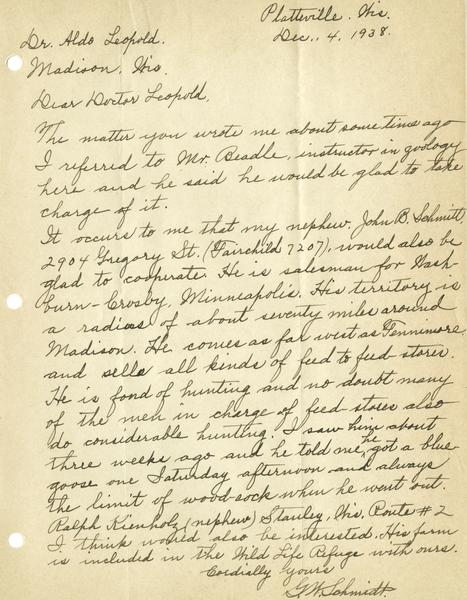 Platteville, Wis.
Dec., 4, 1938.
Dr. Aldo Leopold.
Madison, Wis.
Dear Doctor Leopold,
The matter you wrote me about some time ago
I referred to Mr. Beadle, instructor in zoology
here and he said he would be glad to take
charge of it.
It occurs to me that my nephew, John B. Schmitt
2904 Gregory St. (Fairchild 7207), would also be
glad to cooperate. He is salesman for Wash-
burn-Crosby, Minneapolis. His territory is
a radius of about seventy miles around
Madison. He comes as far west as Fennimore
and sells all kinds of feed to feed stores.
He is fond of hunting and no doubt many
of the men in charge of feed stores also
do considerable hunting. I saw him about
three weeks ago and he told me he got a blue-
goose one Saturday afternoon and always
the limit of wood-cock when he went out.
Ralph Kienholz (nephew) Stanley, Wis, Route #2
I think would also be interested. His farm
is included in the Wild Life Refuge with ours.
Cordially yours
G.W. Schmidt.